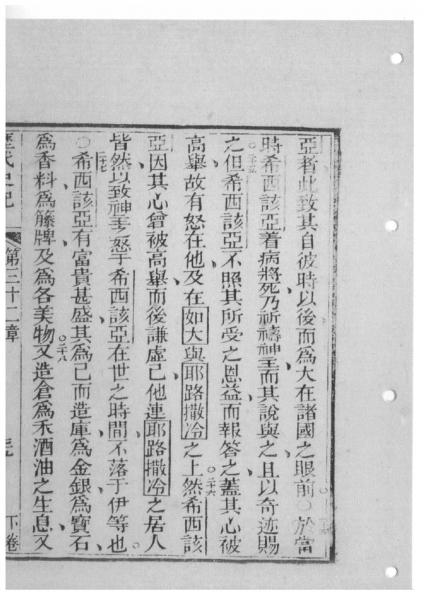 亞者此致其自彼時以後而爲大在諸國之眼前○於當
時希西該亞着病將死乃祈禱神主而其說與之且以奇迹賜
○二十五
之但希西該亞不照其所受之恩益而報答之蓋其心被
高舉故有怒在他及在如大與耶路撒冷之上然希西該
○二十六
亞因其心曾被高舉而後謙虛己他連耶路撒冷之居人
皆然以致神主之怒于希西該亞在世之時間不落于伊等也
○二十七
○希西該亞有富貴甚盛其爲己而造庫爲金銀爲寶石
爲香料爲籐牌及爲各美物又造倉爲禾酒油之生息又
○二十八
歷代史記
第三十二章
下卷